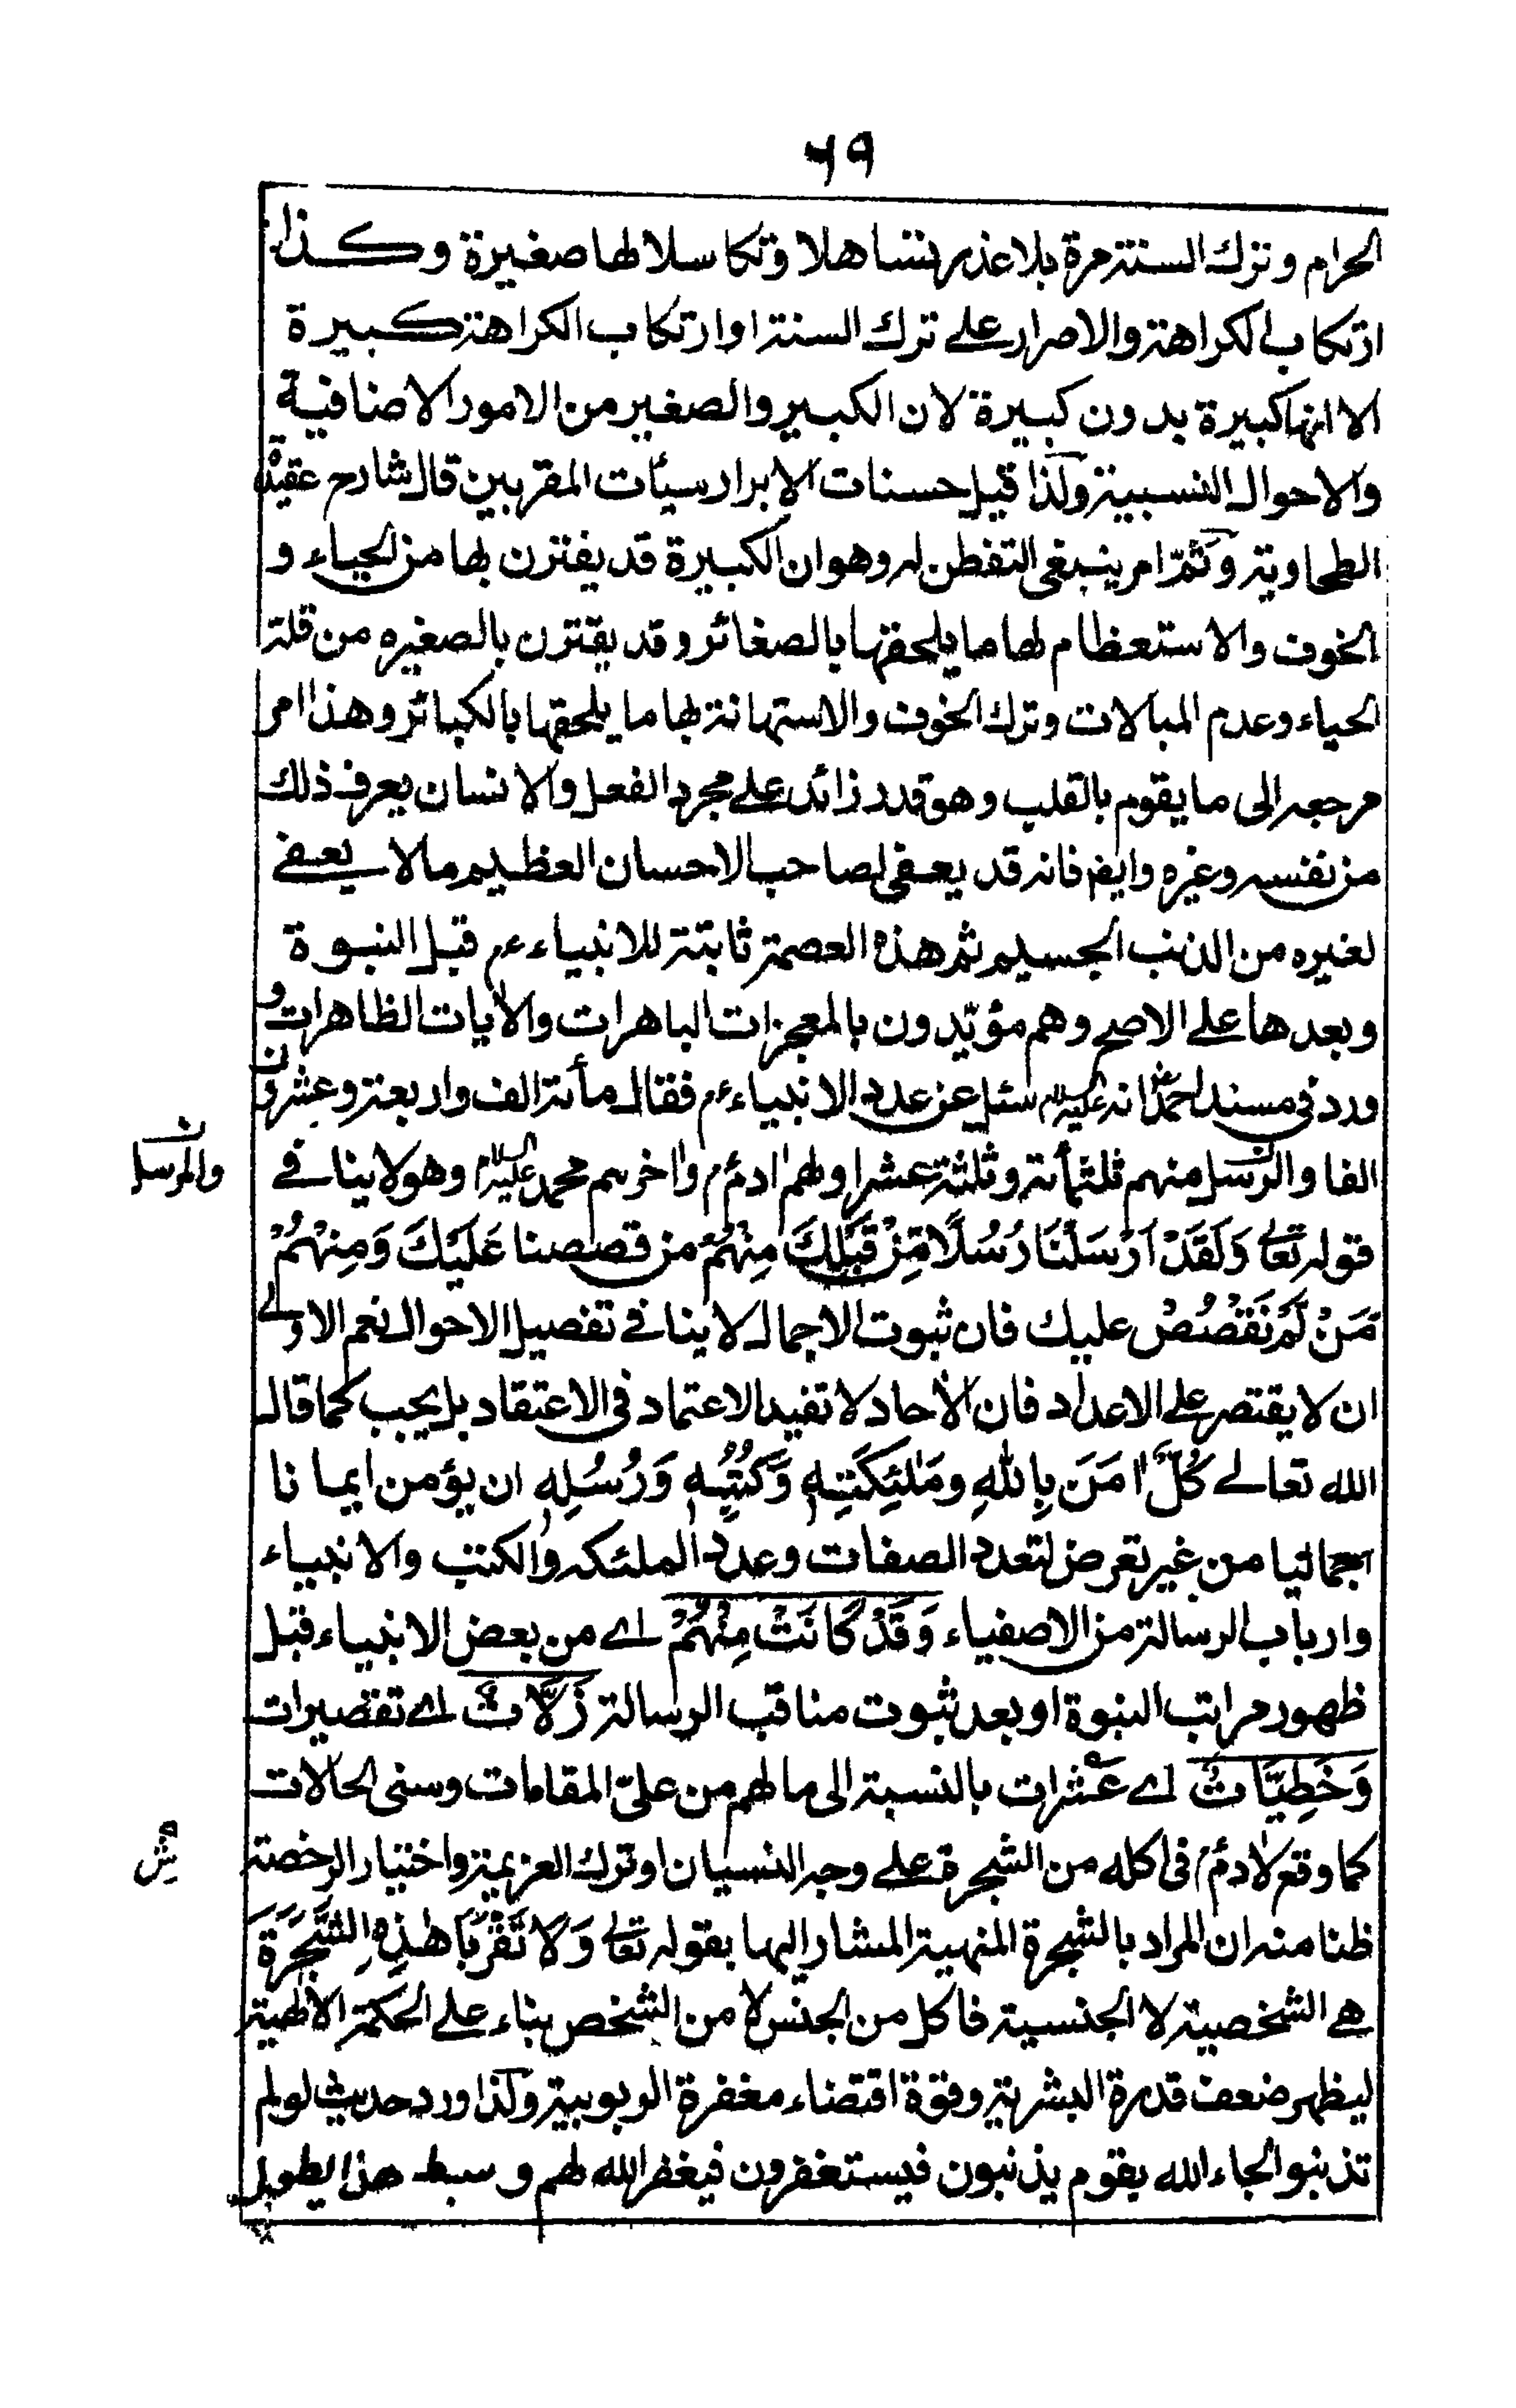 ٦٩
الحرام وترك السنة مرة بلا عذر تساهلا وتكاسلا لها صغيرة وكذا
ارتكاب الكراهة والاصرار على ترك السنة او ارتكاب الكراهة كبيرة
الا انها كبيرة بدون كبيرة لان الكبير والصغير من الامور الاضافية
والاحوال النسبية ولذا قيل حسنات الابرار سيئات المقربين قال شارح عقيدة
الطحاوية وثمّ امر ينبغى التفطن له وهو ان الكبيرة قد يقترن بها من الحياء و
الخوف والاستعظام لها ما يلحقها بالصغائر وقد يقترن بالصغيره من قلة
الحياء وعدم المبالات وترك الخوف والاستهانة بها ما يلحقها بالكبائر وهذا امر
مرجعه الى ما يقوم بالقلب وهو قدر زائد على مجرد الفعل والانسان يعرف ذلك
من نفسه وغيره وايض فانه قد يعفى لصاحب الاحسان العظيم مالا يعفے
لغيره من الذنب الجسيم ثم هذه العصمة ثابتة للانبياء عم قبل النبوة
وبعدها على الاصح وهم مؤيّدون بالمعجزات الباهرات والآيات الظاهرات و
ورد فى مسند احمدؒ انه عليه السلام سئل عن عدد الانبياء عم فقال مأئة الف واربعة وعشرون
الفا والرسل منهم ثلثمائة وثلثة عشر اولهم ادم عم واخرهم محمد عليه السلام وهو لاينافے
والمرسل
قوله تعالى وَلَقَدْ اَرْسَلْنَا رُسُلًا مِّنْ قَبْلِكَ مِنْهُمْ من قصصنا عَلَيْكَ وَمِنْهُمْ
مَنْ لَمْ نَقْصُصْ عليك فان ثبوت الاجمال لاينافے تفصيل الاحوال نعم الاولے
ان لا يقتصر على الاعداد فان الآحاد لا تفيد الاعتماد فى الاعتقاد بل يجب كما قال
الله تعالے كُلٌّ اٰمَنَ بِاللهِ ومَلٰئِكَتِهٖ وَكُتُبِهٖ وَرُسُلِهٖ ان يؤمن ايمانا
اجماليا من غير تعرض لتعدد الصفات وعدد الملئكه والكتب والانبياء
وارباب الرسالة من الاصفياء وَقَدْ كَانَتْ مِنْهُمْ اے من بعض الانبياء قبل
ظهور مراتب النبوة او بعد ثبوت مناقب الرسالة زَلَّاتٌ اے تقصيرات
وَخَطِيَّاتٌ اے عَثرات بالنسبة الى ما لهم من علىّ المقامات وسنى الحالات
كما وقع لآدم عم فى اكله من الشجرة على وجه النسيان او ترك العزيمة واختيار الرخصة
ظنا منه ان المراد بالشجرة المنهية المشار اليها بقوله تعالى وَلَا تَقْرَبَا هٰذِهِ الشَّجَرَةَ
هے الشخصية لا الجنسية فاكل من الجنس لا من الشخص بناء على الحكمة الالهية
ليظهر ضعف قدرة البشرية وقوة اقتضاء مغفرة الربوبية ولذا ورد حديث لولم
تذنبوا لجاء الله بقوم يذنبون فيستغفرون فيغفر الله لهم و سبط هذا يطول